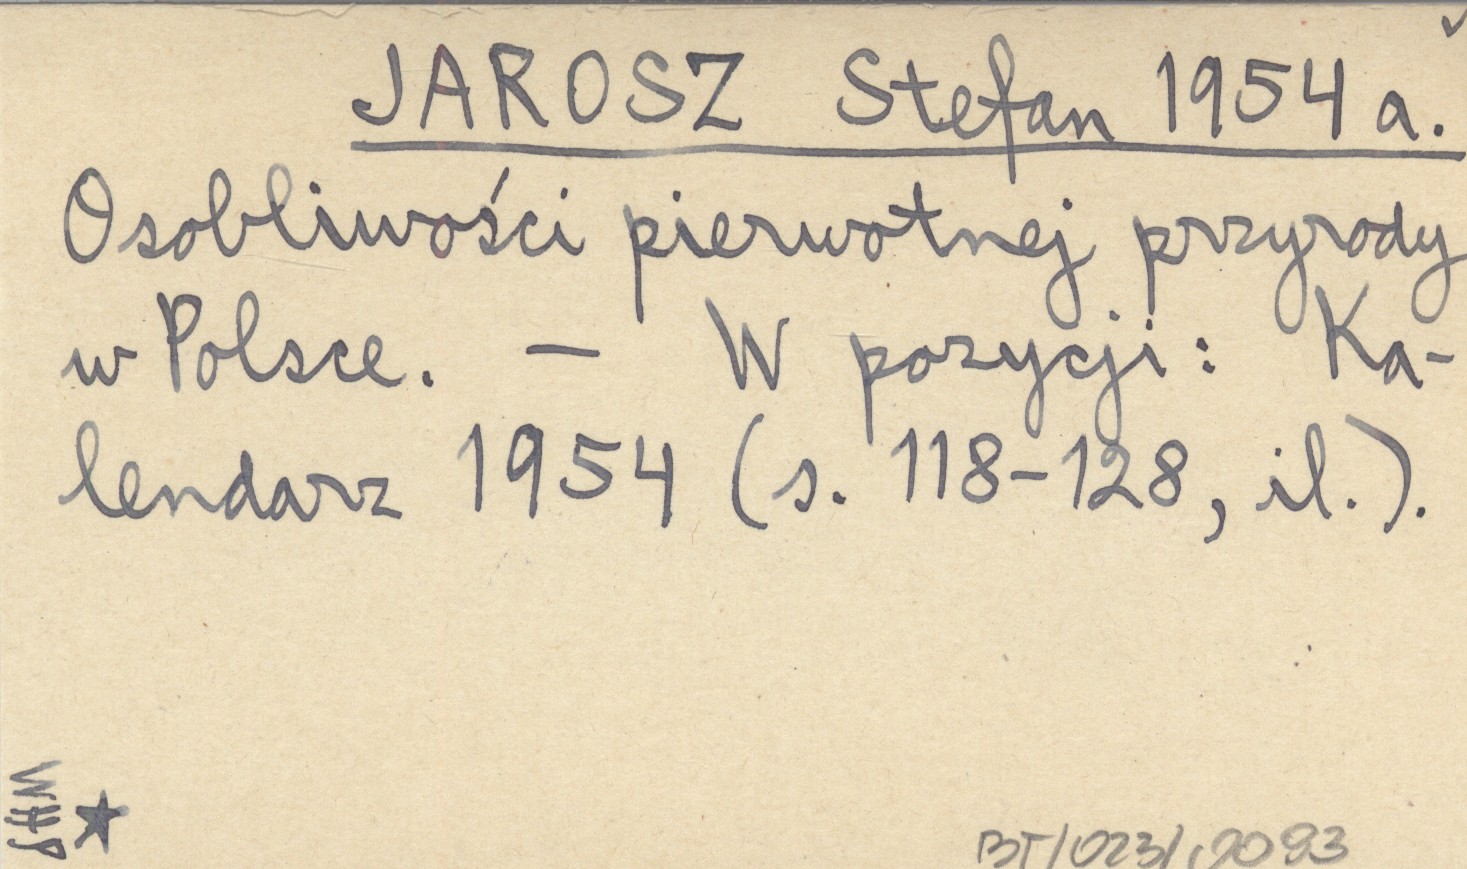 JAROSZ Stefan 1954 a.
Osobliwości pierwotnej przyrody
w Polsce. — W pozycji: Ka-
lendarz 1954 (s. 118-128, il.).
WHP
BT/023/